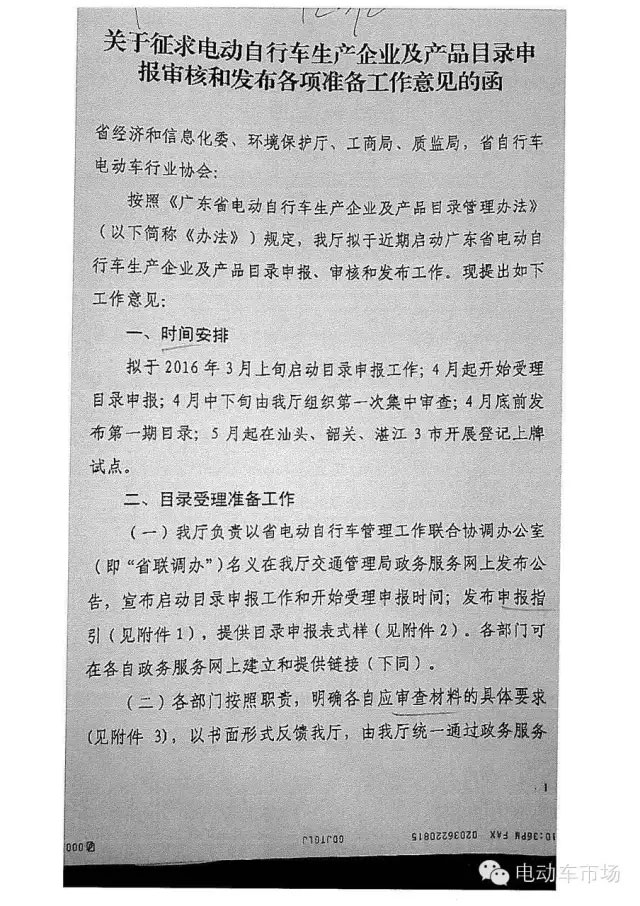 关于征求电动自行车生产企业及产品目录申
报审核和发布各项准备工作意见的函
省经济和信息化委、环境保护厅、工商局、质监局，省自行车
电动车行业协会：
按照《广东省电动自行车生产企业及产品目录管理办法》
（以下简称《办法》）规定，我厅拟于近期启动广东省电动自
行车生产企业及产品目录申报、审核和发布工作。现提出如下
工作意见：
一、时间安排
拟于 2016 年 3 月上旬启动目录申报工作；4 月起开始受理
目录申报；4 月中下旬由我厅组织第一次集中审查；4 月底前发
布第一期目录；5 月起在汕头、韶关、湛江 3 市开展登记上牌
试点。
二、目录受理准备工作
（一）我厅负责以省电动自行车管理工作联合协调办公室
（即“省联调办”）名义在我厅交通管理局政务服务网上发布公
告，宣布启动目录申报工作和开始受理申报时间；发布申报指
引（见附件 1），提供目录申报表式样（见附件 2）。各部门可
在各自政务服务网上建立和提供链接（下同）。
（二）各部门按照职责，明确各自应审查材料的具体要求
(见附件 3)，以书面形式反馈我厅，由我厅统一通过政务服务
1
10:36PM FAX 02036220815
GDJTGLJ
000
电动车市场